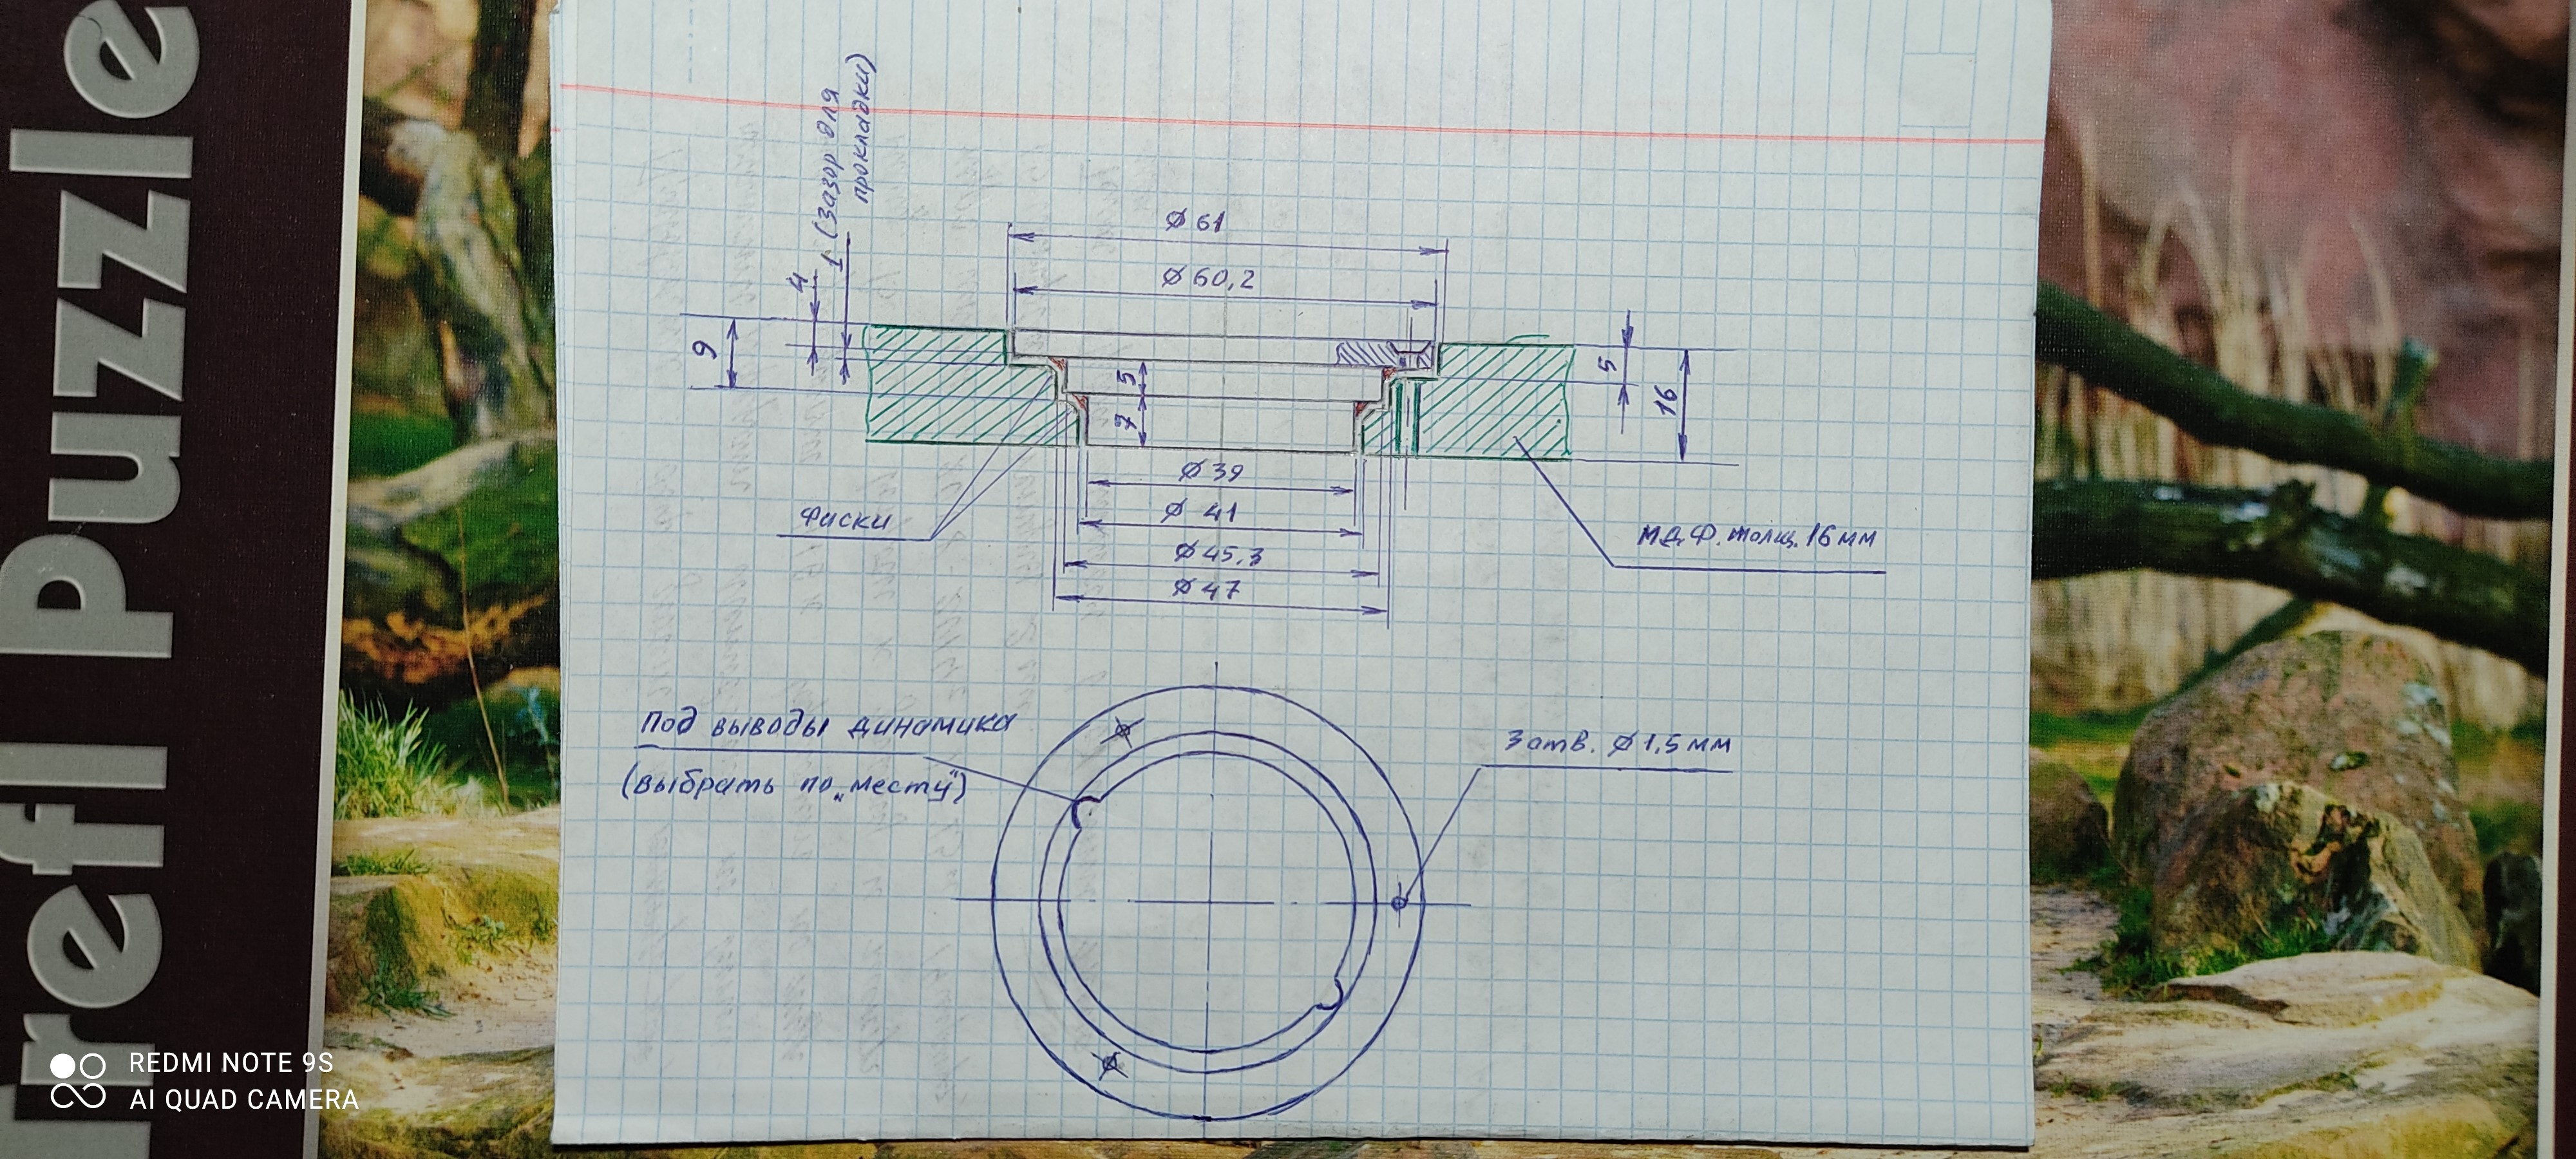 refl Puzzle
1 (зазор для
прокладки)
Ø 61
Ø 60,2
4
9
5
7
5
16
Ø 39
Ø 41
Ø 45,3
Ø 47
Фаски
М.Д.Ф. толщ. 16 мм
Под выводы динамика
(выбрать по „месту")
3 отв. Ø 1,5 мм
REDMI NOTE 9S
AI QUAD CAMERA